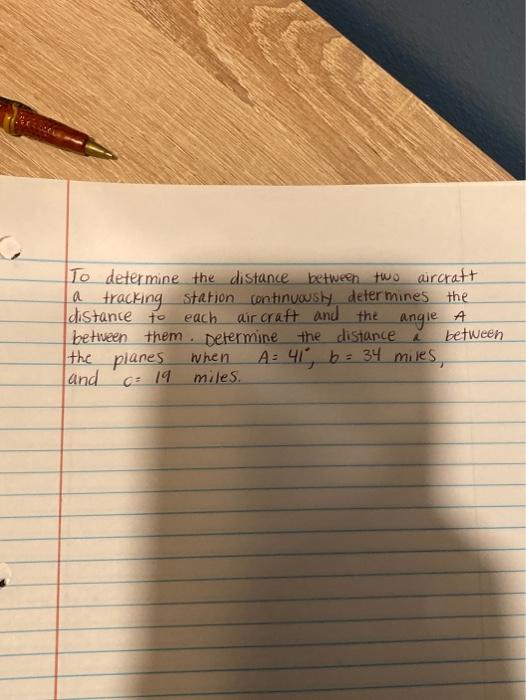 To determine the distance between two aircraft
a tracking station continuously determines the
distance to each aircraft and the angle A
between them. Determine the distance a between
the planes when A= 41°, b= 34 miles,
and c= 19 miles.